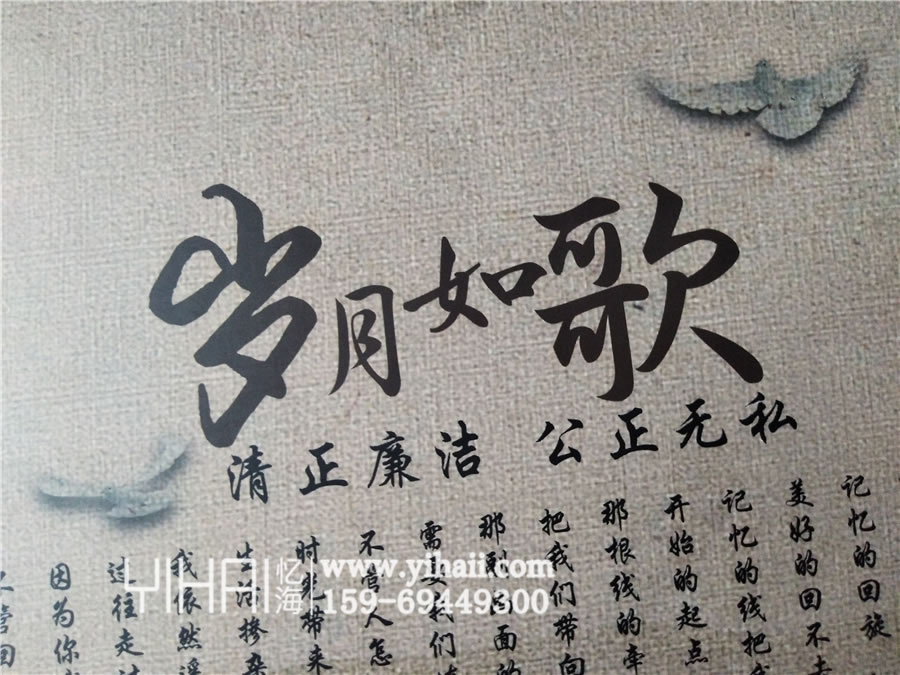 岁月如歌
清正廉洁 公正无私
记忆的回旋
美好的回不
记忆的线把
开始的起点
那根线的牵
把我们带向
那到面的
需要我们
不管人怎
时光带来
生活掺杂
我依然
过往走
因为你
管回
YIHAI 忆海
www.yihaii.com
159-69449300